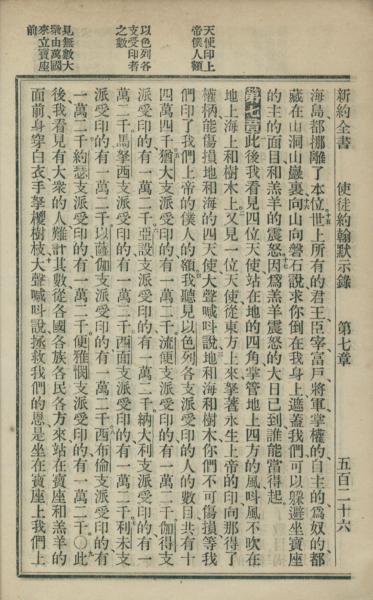 新約全書　使徒約翰默示錄　第七章　五百二十六
海島都挪離了本位世上所有的君王臣宰富戶將軍掌權的自主的為奴的都
藏在山洞山巖裏向山向磐石說求你倒在我身上遮蓋我們可以躲避坐寶座
的主的面目和羔羊的震怒因為羔羊震怒的大日已到誰能當得起
第七章此後我看見四位天使站在地的四角掌管地上四方的風呌風不吹在
地上海上和樹木上又見一位天使從東方上來拏著永生上帝的印向那得了
權柄能傷損地和海的四天使大聲喊呌說地和海和樹木你們不可傷損等我
們印了我們上帝的僕人的額我聽見以色列各支派受印的人的數目共有十
四萬四千猶大支派受印的有一萬二千流便支派受印的有一萬二千伽得支
派受印的有一萬二千亞設支派受印的有一萬二千納大利支派受印的有一
萬二千馬拏西支派受印的有一萬二千西面支派受印的有一萬二千利未支
派受印的有一萬二千以薩伽支派受印的有一萬二千西布倫支派受印的有
一萬二千約瑟支派受印的有一萬二千便雅憫支派受印的有一萬二千〇此
後我看見有大衆的人難計其數從各國各族各民各方來站在寶座和羔羊的
面前身穿白衣手拏椶樹枝大聲喊呌說拯救我們的恩是坐在寶座上我們上
天使印上
帝僕人額
以色列各
支受印者
之數
見無數大
衆由萬國
來立寶座
前